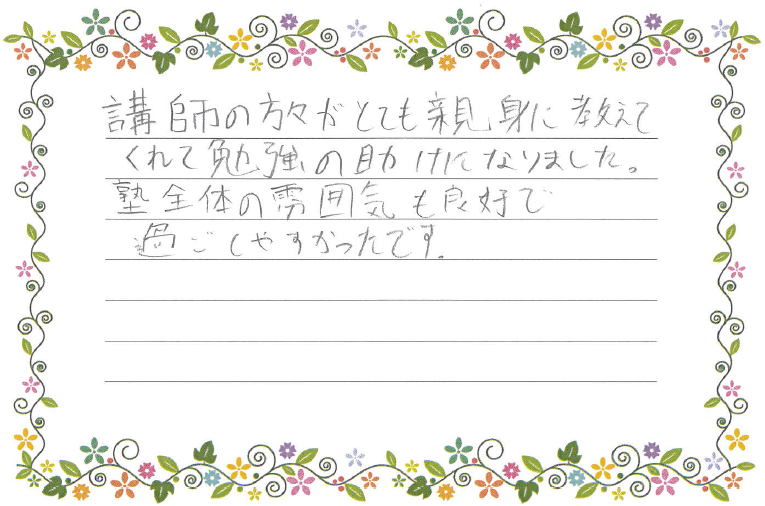 講師の方々がとても親身に教えて
くれて勉強の助けになりました。
塾全体の雰囲気も良好で
過ごしやすかったです。